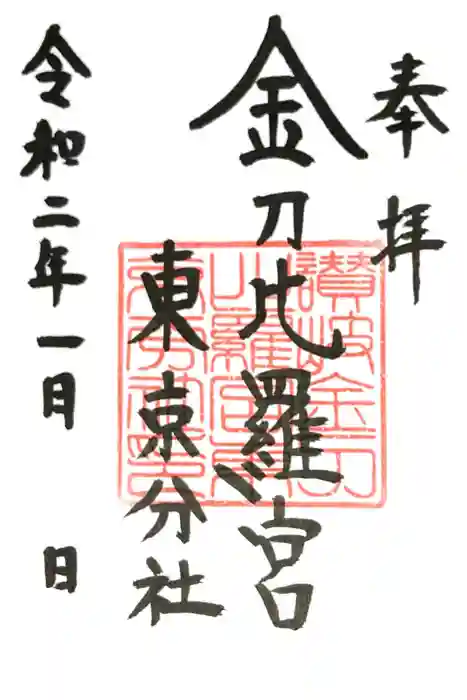 奉拝
金刀比羅宮
東京分社
令和二年一月 日
讃岐金刀
比羅宮東
京分社印